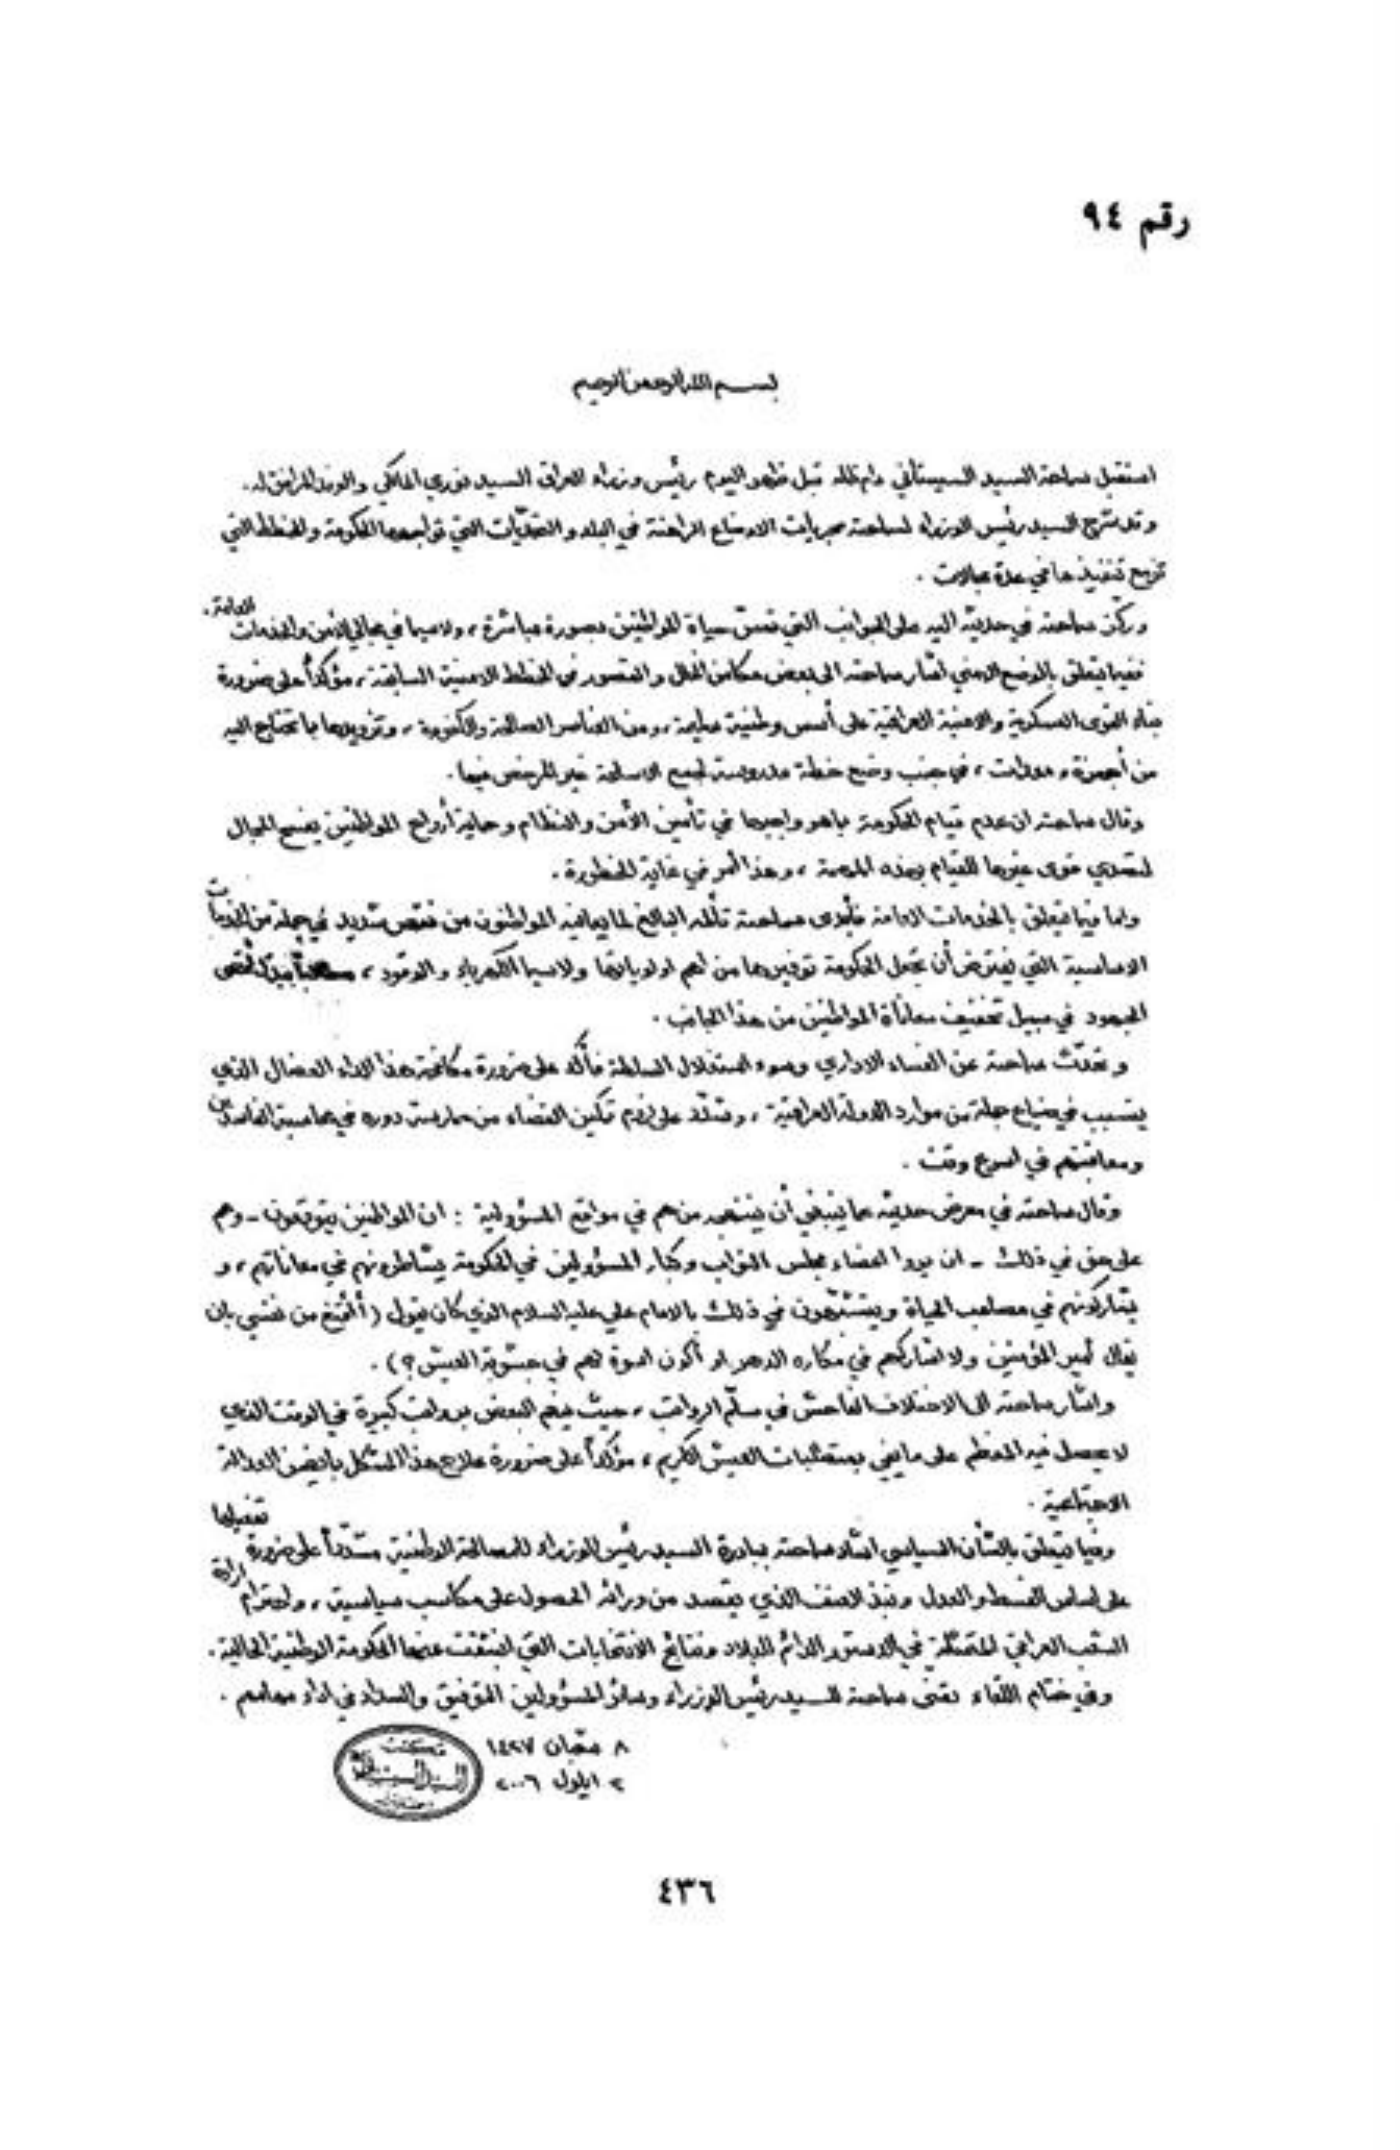 رقم ٩٤
بسم الله الرحمن الرحيم
استقبل سماحة السيد السيستاني دام ظله قبل ظهر اليوم رئيس وزراء العراق السيد نوري المالكي والوفد المرافق له.
وقد شرح السيد رئيس الوزراء لسماحته مجريات الاوضاع الراهنة في البلد والتحدّيات التي تواجهها الحكومة والخطط التي
تزمع تنفيذها في عدة مجالات.
وركّز سماحته في حديثه اليه على الجوانب التي تمسّ حياة المواطنين بصورة مباشرة، ولاسيما في مجالي الأمن والخدمات العامة.
ففيما يتعلق بالوضع الامني اشار سماحته الى بعض مكامن الخلل والقصور في الخطط الامنية السابقة، مؤكداً على ضرورة
بناء القوى العسكرية والامنية العراقية على أسس وطنية سليمة، ومن العناصر الصالحة والكفوءة، وتزويدها بما تحتاج اليه
من أجهزة ومعدات، في جنب وضع خطة مدروسة لجمع الاسلحة غير المرخص فيها.
وقال سماحته ان عدم قيام الحكومة بما هو واجبها في تأمين الأمن والنظام وحماية أرواح المواطنين يفسح المجال
لتصدي قوى غيرها للقيام بهذه المهمة، وهذا أمر في غاية الخطورة.
واما فيما يتعلق بالخدمات العامة فأبدى سماحته تألمه البالغ لما يعانيه المواطنون من نقص شديد في جملة من الخدمات
الاساسية التي يفترض أن تجعل الحكومة توفيرها من اهم اولوياتها ولاسيما الكهرباء والوقود، مطالباً ببذل أقصى
الجهود في سبيل تخفيف معاناة المواطنين من هذا الجانب.
وتحدّث سماحته عن الفساد الاداري وسوء استغلال السلطة فأكّد على ضرورة مكافحة هذا الداء العضال الذي
يتسبب في ضياع جملة من موارد الدولة العراقية، وشدّد على لزوم تمكين القضاء من ممارسة دوره في محاسبة الفاسدين
ومعاقبتهم في اسرع وقت.
وقال سماحته في معرض حديثه عما ينبغي أن ينتهجه من هم في مواقع المسؤولية : ان المواطنين يتوقعون ـ وهم
على حق في ذلك ـ ان يروا اعضاء مجلس النواب وكبار المسؤولين في الحكومة يشاطرونهم في معاناتهم، و
يشاركونهم في مصاعب الحياة ويتشبّهون في ذلك بالامام علي عليه السلام الذي كان يقول (أأقنع من نفسي بان
يقال أمير المؤمنين ولا اشاركهم في مكاره الدهر او أكون اسوة لهم في جشوبة العيش؟).
واشار سماحته الى الاختلاف الفاحش في سلّم الرواتب، حيث ينعم البعض برواتب كبيرة في الوقت الذي
لا يحصل فيه المعظم على ما يفي بمتطلبات العيش الكريم، مؤكداً على ضرورة علاج هذا المشكل بما يضمن العدالة
الاجتماعية.
وفيما يتعلق بالشأن السياسي اشاد سماحته بمبادرة السيد رئيس الوزراء للمصالحة الوطنية مشدّداً على ضرورة تفعيلها
على اساس القسط والعدل ونبذ العنف الذي يقصد من ورائه الحصول على مكاسب سياسية، واحترام ارادة
الشعب العراقي المتمثلة في الدستور الدائم للبلاد ونتائج الانتخابات التي انبثقت عنها الحكومة الوطنية الحالية.
وفي ختام اللقاء تمنى سماحته للسيد رئيس الوزراء وسائر المسؤولين التوفيق والسداد في اداء مهامهم.
٨ شعبان ١٤٢٧
٢ ايلول ٢٠٠٦
مكتب
السيد السيستاني
٤٣٦